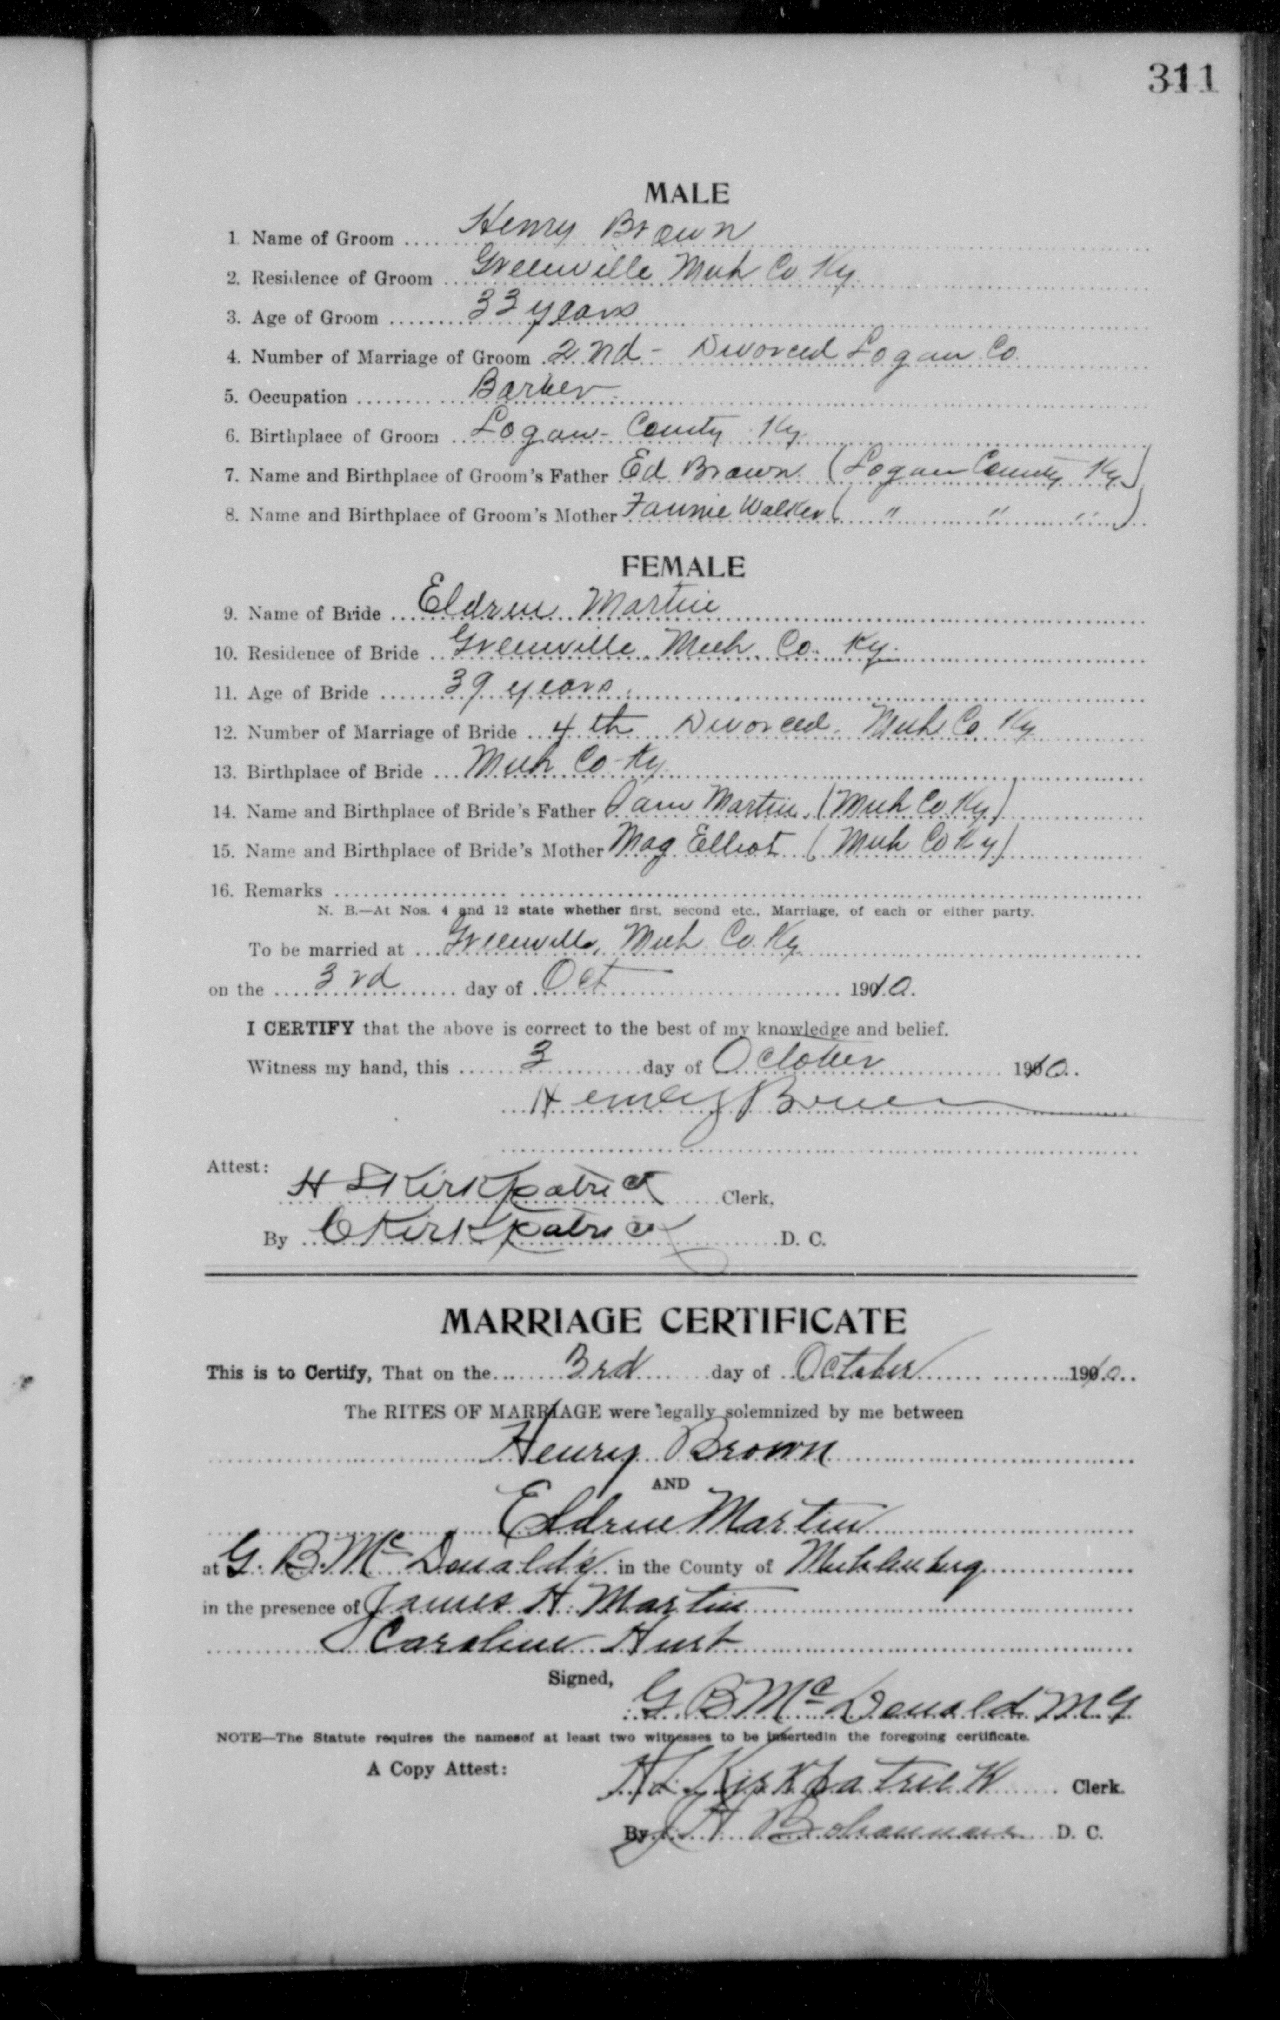 311
MALE
1 Name of Groom .... Henry Brown
2. Residence of Groom .... Greenville Muh Co Ky.
3. Age of Groom .... 33 years
4. Number of Marriage of Groom . 2nd - Divorced Logan Co.
5. Occupation .... Barber
6. Birthplace of Groom .... Logan County Ky
7. Name and Birthplace of Groom's Father Ed Brown (Logan County Ky)
8. Name and Birthplace of Groom's Mother Fannie Walker ( " " " )
FEMALE
9. Name of Bride .... Martin
10. Residence of Bride .. Greenville Muh. Co. Ky.
11. Age of Bride .... 39 years
12. Number of Marriage of Bride .. 4th Divorced. Muh Co Ky
13. Birthplace of Bride ... Muh Co Ky
14. Name and Birthplace of Bride's Father Martin (Muh Co Ky)
15. Name and Birthplace of Bride's Mother Mag Elliot (Muh Co Ky)
16. Remarks ....
N. B.—At Nos. 4 and 12 state whether first, second etc., Marriage, of each or either party.
To be married at ... Greenville, Muh Co. Ky
on the .... 3rd .... day of .. Oct .... 1910.
I CERTIFY that the above is correct to the best of my knowledge and belief.
Witness my hand, this .... 3 .... day of October .... 1910.
Henry
Attest:
Kirkpatrick .... Clerk,
By .. C Kirkpatrick .... D. C.
MARRIAGE CERTIFICATE
This is to Certify, That on the .... 3rd .... day of .. October .... 1910.
The RITES OF MARRIAGE were legally solemnized by me between
Henry Brown
AND
Martin
at G. B. McDonald's in the County of Muhlenberg
in the presence of James H. Martin
Caroline Hurt
Signed,
G B McDonald M G
NOTE—The Statute requires the namesof at least two witnesses to be insertedin the foregoing certificate.
A Copy Attest:
Kirkpatrick .... Clerk.
By Bohannan D. C.